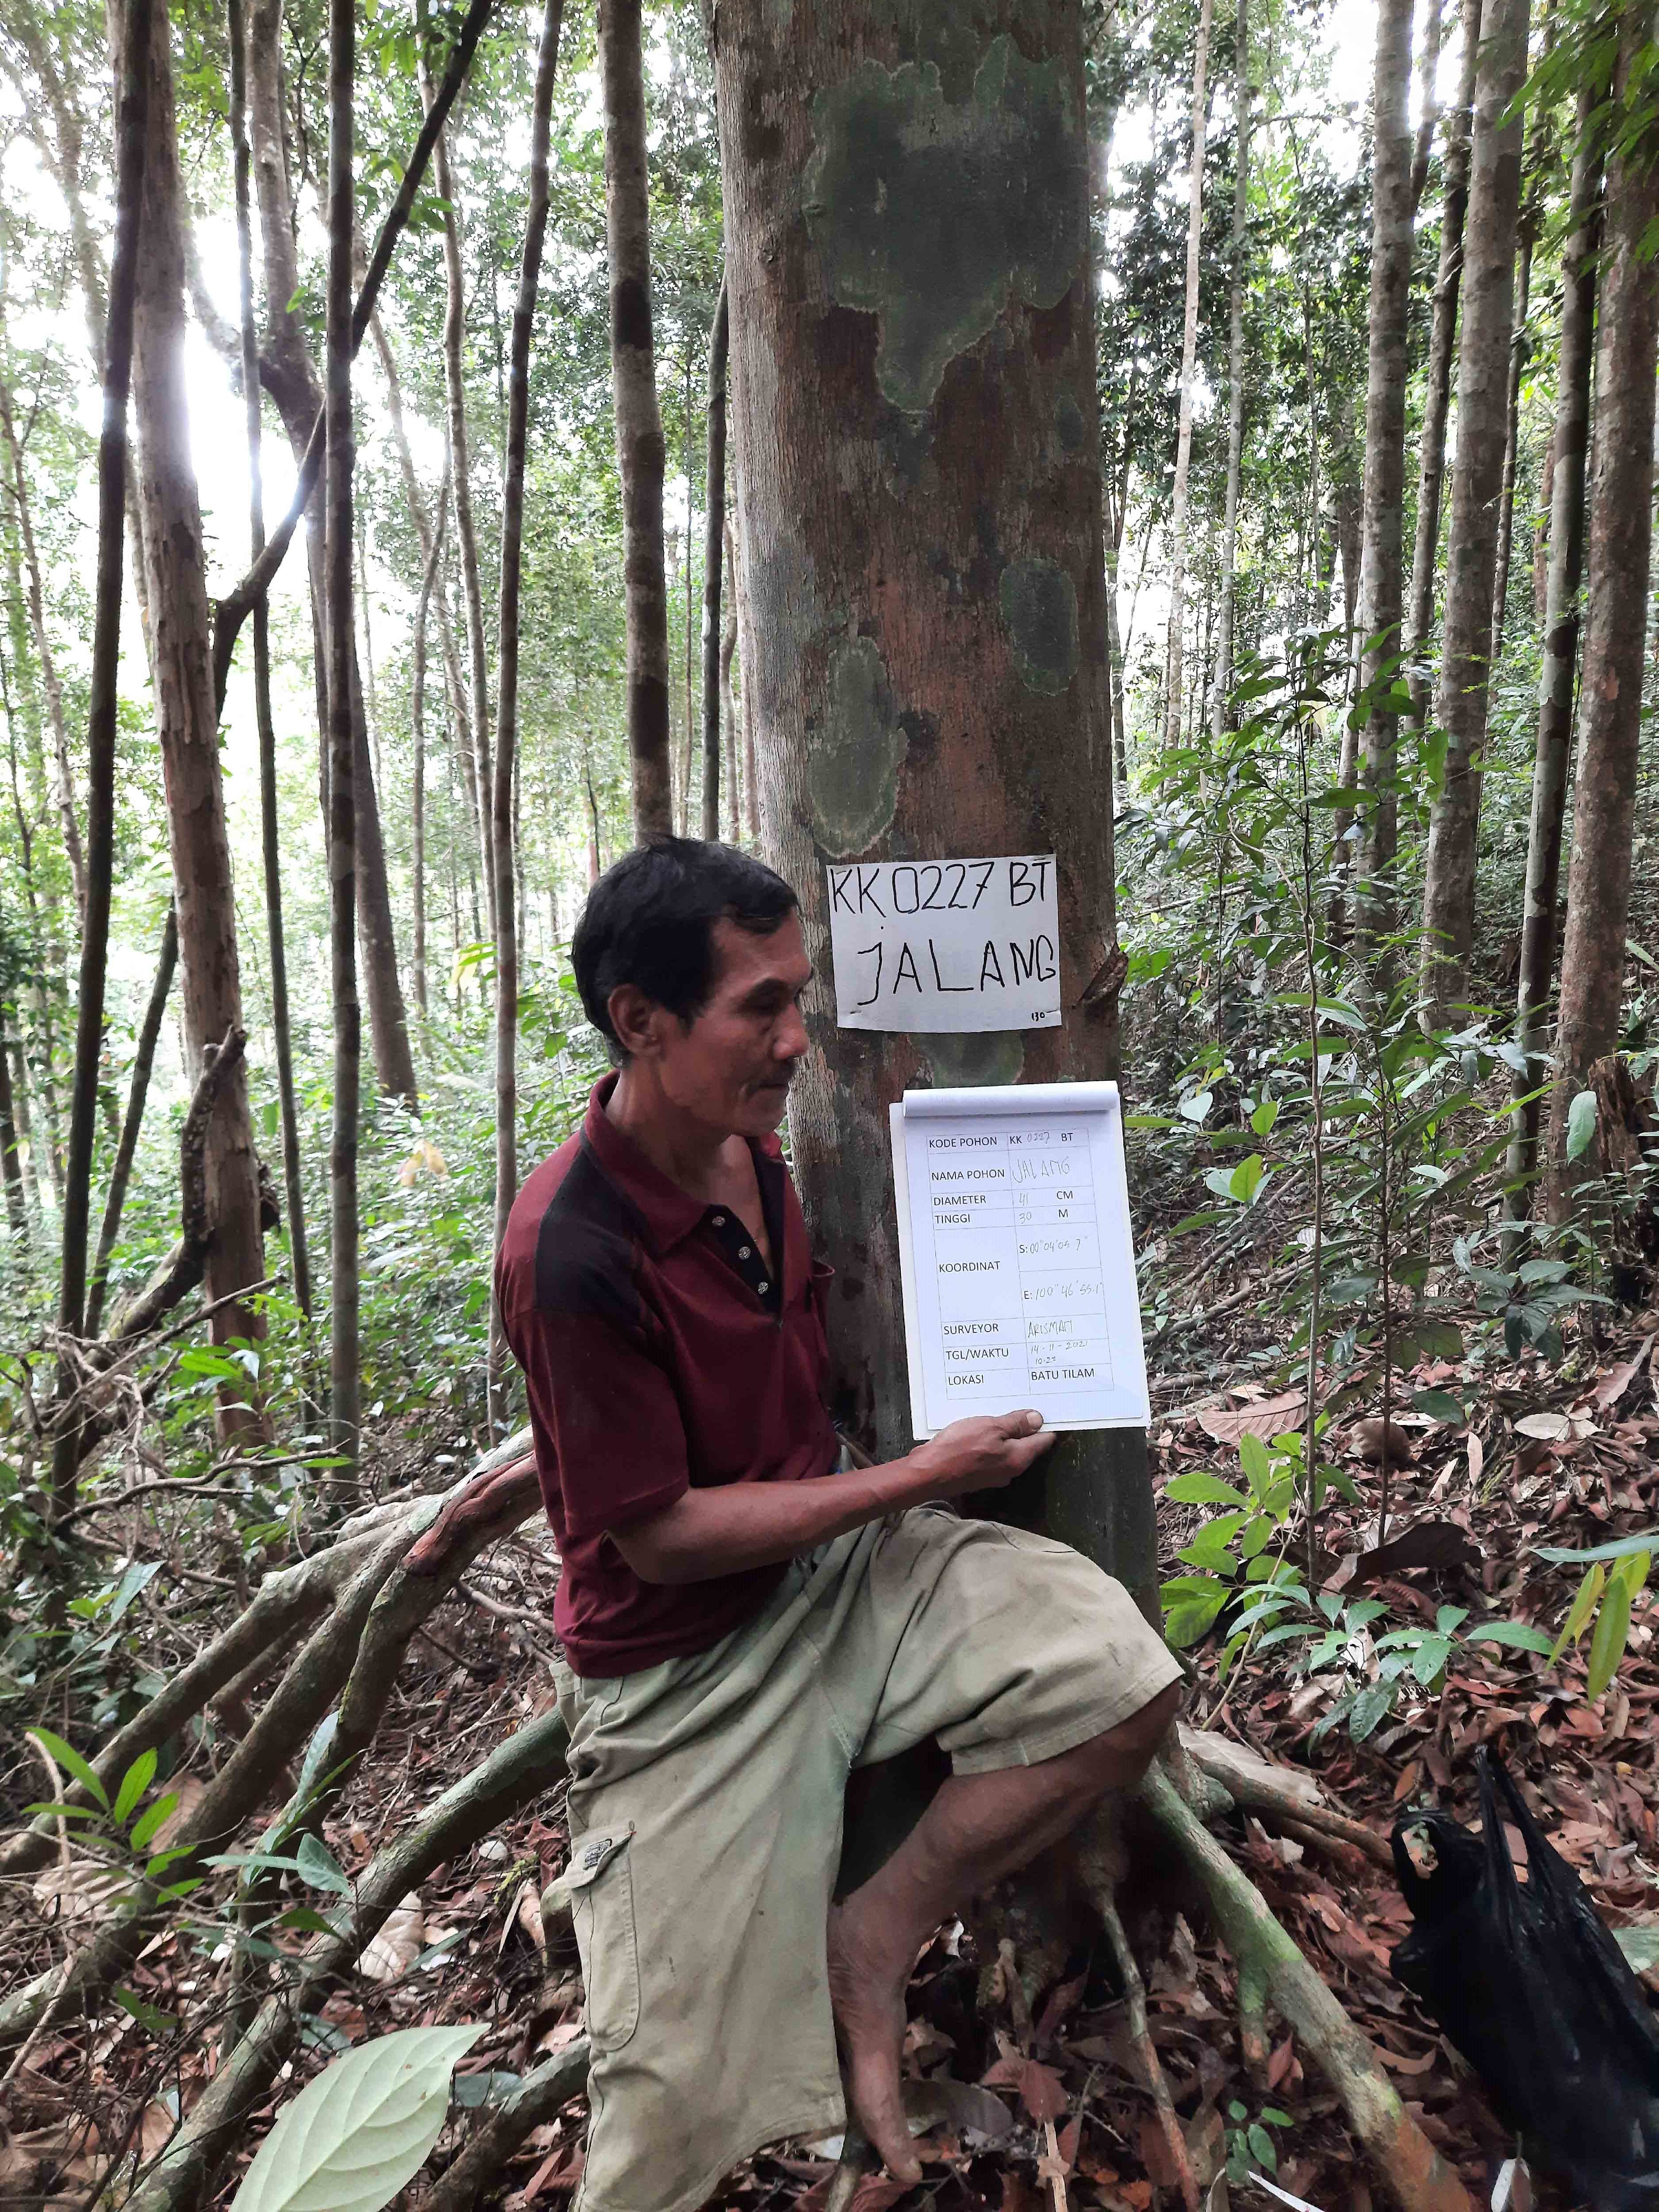 KK0227 BT
JALANG
130
KODE POHON KK 0227 BT
NAMA POHON JALANG
DIAMETER 41 CM
TINGGI 30 M
KOORDINAT
S: 00°04'05.7"
E: 100°46'55.1"
SURVEYOR ARISMAN
TGL/WAKTU 14-11-2021
10-25
LOKASI BATU TILAM